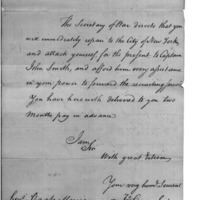 The Secretary of War directs that you
will immediately repair to the City of New York,
and attach yourself for the present to Captain
John Smith, and afford him every assistance
in your power to forward the recruiting service.
You have herewith delivered to you two
Months pay in advance.
I am
Sir
With great Esteem
Your very hum Servant